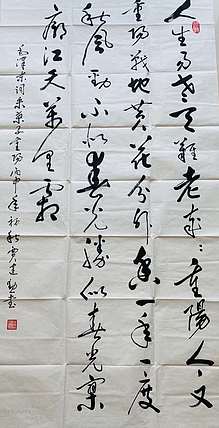 人生易老天難老歲〻重陽今又
重陽戰地黃花分外香一年一度
秋風勁不似春光勝似春光寥
廓江天萬里霜
毛澤東詞采桑子重陽丙申年秋書